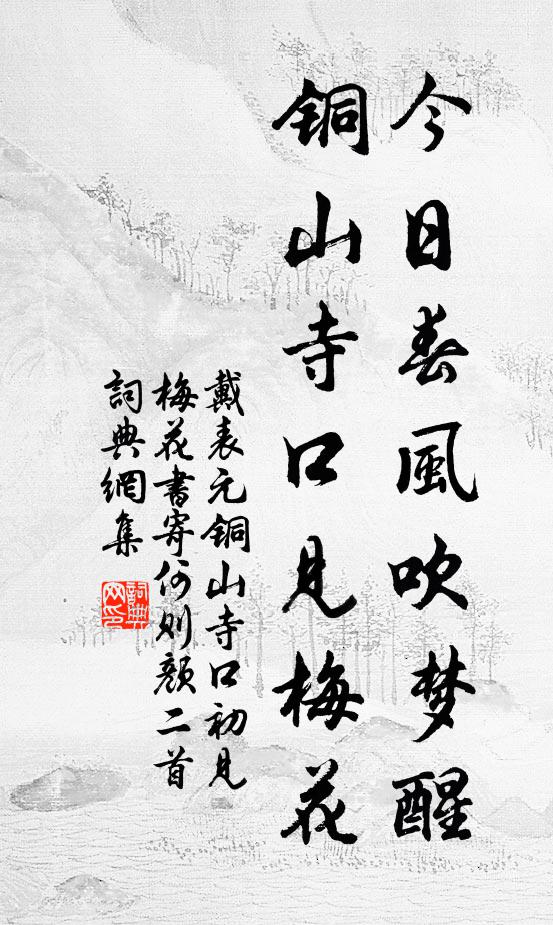 今日春風吹梦醒
铜山寺口見梅花
戴表元铜山寺口初見
梅花書寄何则颜二首
詞典網集
詞典網印